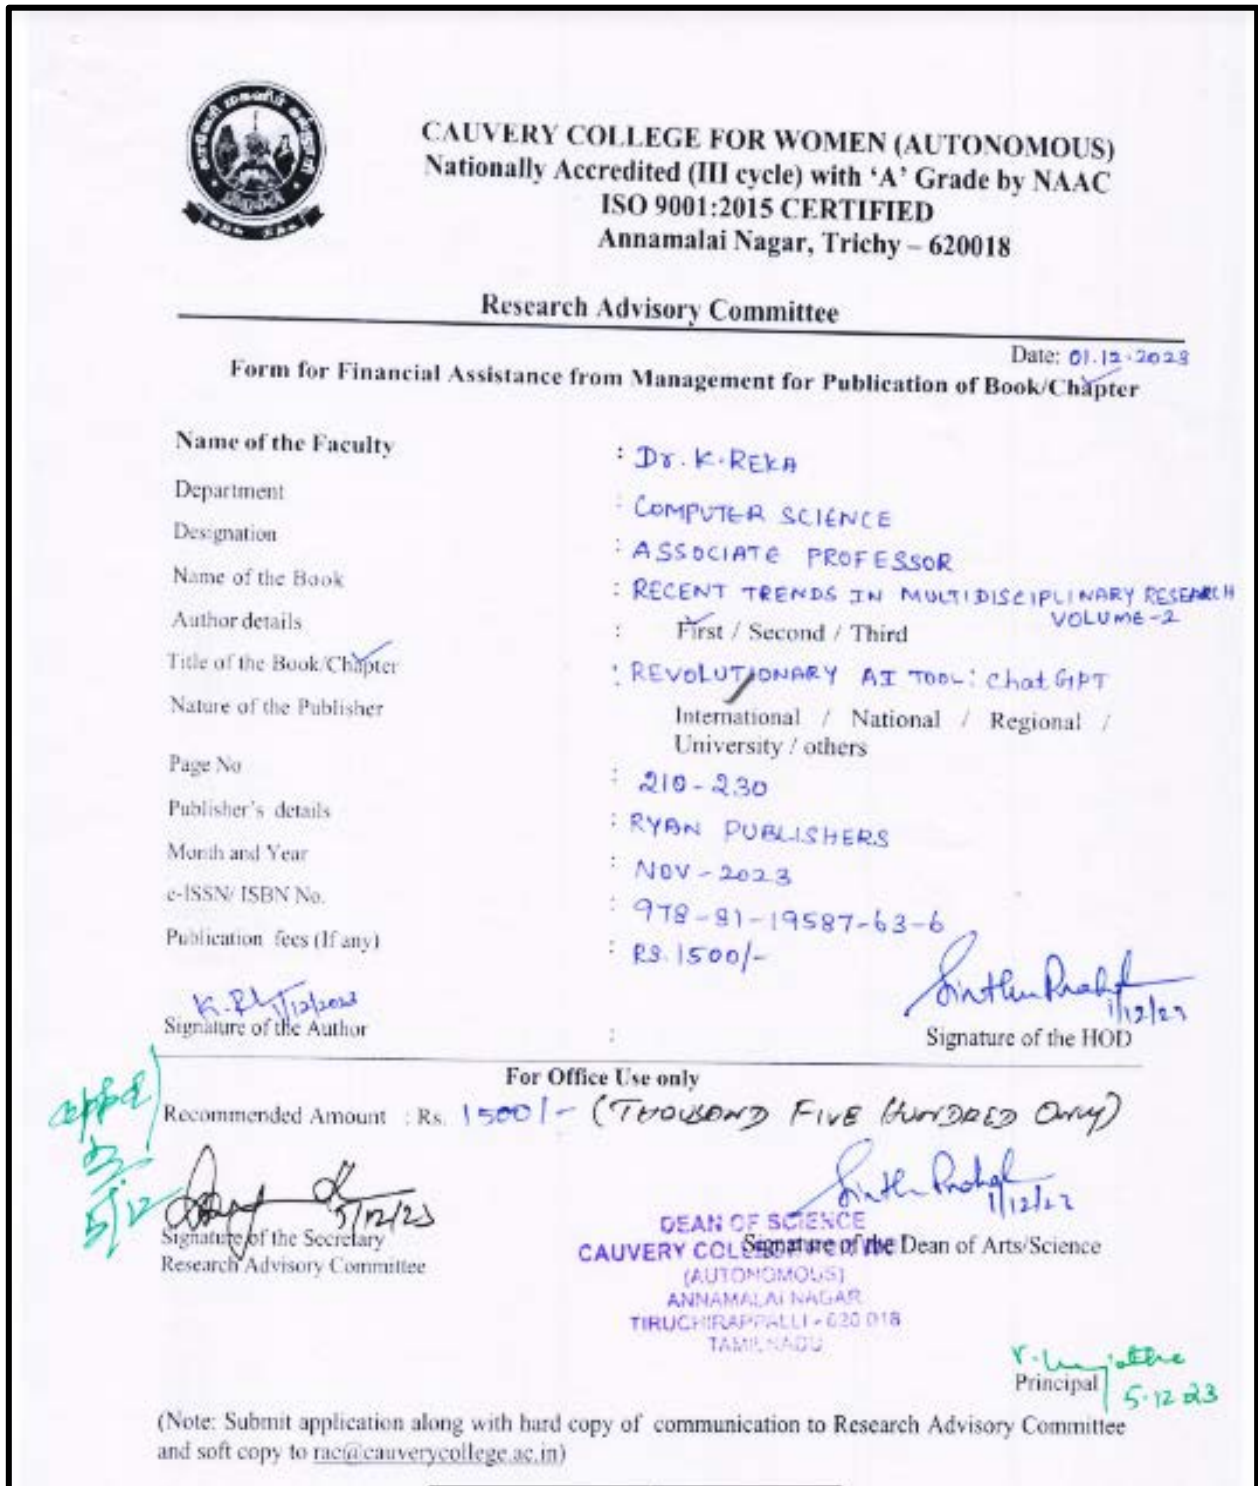 காவேரி மகளிர் கல்லூரி
CAUVERY COLLEGE FOR WOMEN (AUTONOMOUS)
Nationally Accredited (III cycle) with ‘A’ Grade by NAAC
ISO 9001:2015 CERTIFIED
Annamalai Nagar, Trichy – 620018
Research Advisory Committee
Date: 01.12.2023
Form for Financial Assistance from Management for Publication of Book/Chapter
Name of the Faculty : Dr. K. REKA
Department : COMPUTER SCIENCE
Designation : ASSOCIATE PROFESSOR
Name of the Book : RECENT TRENDS IN MULTIDISCIPLINARY RESEARCH
VOLUME-2
Author details : First / Second / Third
Title of the Book/Chapter : REVOLUTIONARY AI TOOL: ChatGPT
Nature of the Publisher International / National / Regional /
University / others
Page No : 210-230
Publisher's details : RYAN PUBLISHERS
Month and Year : NOV-2023
e-ISSN/ ISBN No. : 978-81-19587-63-6
Publication fees (If any) : RS. 1500/-
1/12/2023
1/12/23
Signature of the Author : Signature of the HOD
For Office Use only
Recommended Amount : Rs. 1500/- (THOUSAND FIVE HUNDRED ONLY)
5/12
5/12/23
1/12/23
Signature of the Secretary
Research Advisory Committee
Signature of the Dean of Arts/Science
DEAN OF SCIENCE
CAUVERY COLLEGE
(AUTONOMOUS)
ANNAMALAI NAGAR
TIRUCHIRAPPALLI - 620 018
TAMILNADU
Principal 5.12.23
(Note: Submit application along with hard copy of communication to Research Advisory Committee
and soft copy to rac@cauverycollege.ac.in)